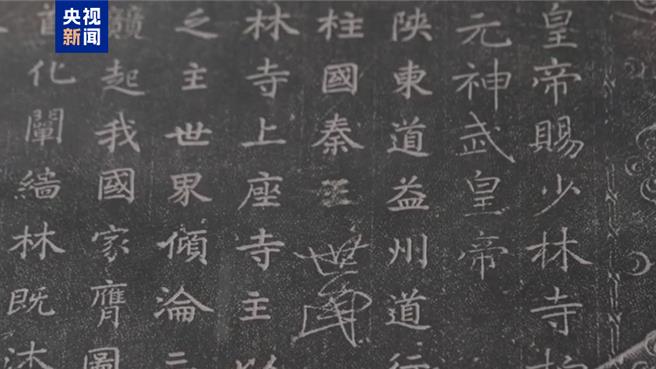 央视
新闻
皇帝賜少林寺柏
元神武皇帝
陕東道益州道行
柱國秦王世民
林寺上座寺主以
之主世界傾淪
起我國家膺圖
化闡緇林既沐